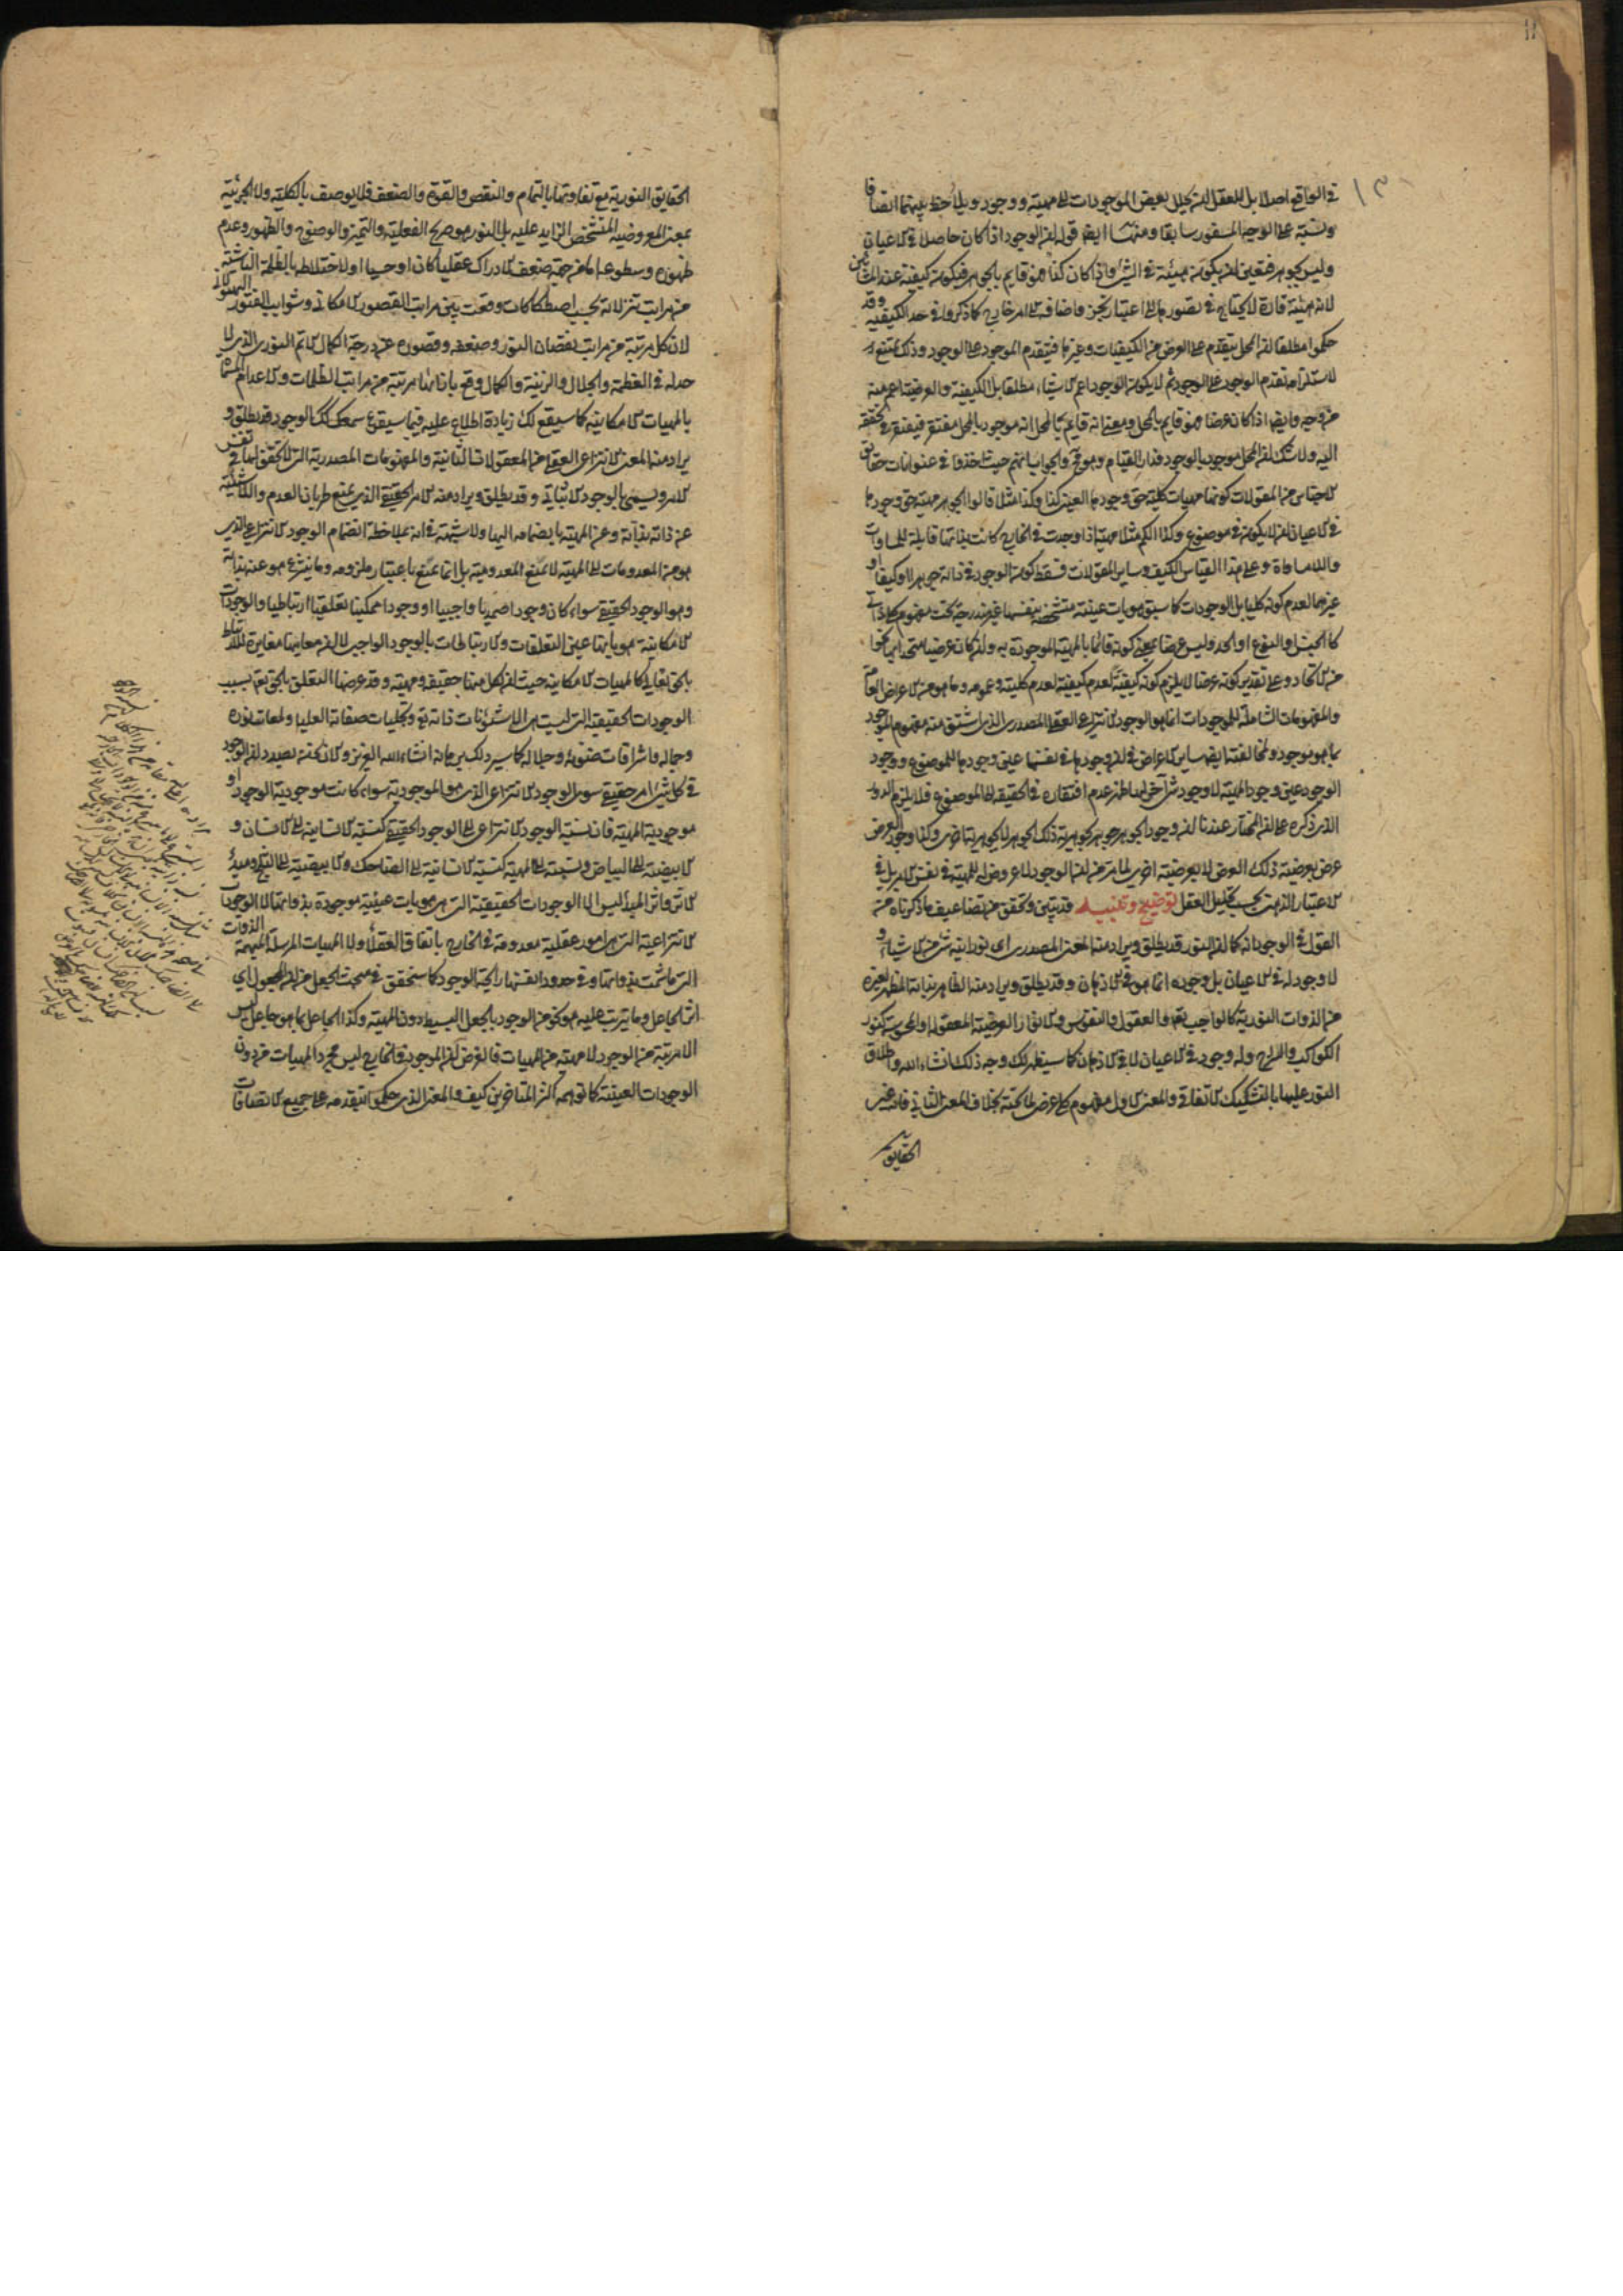 ١٣
في الواقع اصلا بل للعقل ان يحلل بعض الموجودات الى مهية ووجود ويلاحظ بينهما اتصافا
ونسبة على الوجه المسفور سابقا ومنها ايضا قوله ان الوجود اذا كان حاصلا في الاعيان
وليس بجوهر فتعين ان يكون هيئة في الشئ واذا كان كذا فهو قايم بالجوهر فيكون كيفية عند المشائين
لانه هيئة قارة لا يحتاج في تصورها الى اعتبار تجزء واضافة الى امر خارج كما ذكروا في حد الكيفية وقد
حكموا مطلقا ان المحل يتقدم على العرض من الكيفيات وغيرها فيتقدم الموجود على الوجود وذلك ممتنع
لاستلزامه تقدم الوجود على الوجود ثم لا يكون الوجود اعم الاشياء مطلقا بل الكيفية والعرضية اعم منه
من وجه وايضا اذا كان عرضا فهو قايم بالمحل ومعنى انه قايم بالمحل انه موجود بالمحل مفتقر فيفتقر في تحققه
اليه ولا شك ان المحل موجود بالوجود فدار القيام وهو مح والجواب انهم حيث اخذوا في عنوانات حقايق
الاجناس من المقولات كونها مهيات كلية حق وجودها العيني كذا وكذا مثلا قالوا الجوهر مهية حق وجودها
في الاعيان ان لا يكون في موضوع وكذا الكم مثلا مهية اذا وجدت في الخارج كانت بذاتها قابلة للمساوات
واللامساواة وعلى هذا القياس الكيف وساير المقولات فسقط كون الوجود في ذاته جوهرا او كيفا او
غيرهما لعدم كونه كليا بل الوجودات كما سبق هويات عينية متشخصة بنفسها غير مندرجة تحت مفهوم كلي ذاتي
كالجنس والنوع او الحد وليس عرضا بمعنى كونه قائما بالمهية الموجودة به وان كان عرضيا متحدا بها نحوا
من الاتحاد وعلى تقدير كونه عرضا لا يلزم كونه كيفية لعدم كليته وعمومه وما هو من الاعراض العامة
والمفهومات الشاملة للموجودات انما هو الوجود الانتزاعي العقلي المصدري الذي اشتق منه مفهوم الموجود
بما هو موجود ولمخالفته ايضا ساير الاعراض في ان وجودها في نفسها عين وجودها للموضوع ووجود
الوجود عين وجود المهية لا وجود شئ آخر لها ظهر عدم افتقاره في تحققه الى الموضوع فلا يلزم الدور
الذي ذكره على ان المختار عندنا ان وجود الجوهر جوهر بجوهرية ذلك الجوهر لا بجوهرية اخرى وكذا وجود العرض
عرض بعرضية ذلك العرض لا بعرضية اخرى لما مر من ان الوجود لا عروض له للمهية في نفس الامر بل في
الاعتبار الذهني بحسب تحليل العقل توضيح وتنبيه قد تبين وتحقق من تضاعيف ما ذكرناه من
القول في الوجود انه كما ان النور قد يطلق ويراد منه المعنى المصدري اي نورانية شئ من الاشياء و
لا وجود له في الاعيان بل وجوده انما هو في الاذهان وقد يطلق ويراد منه الظاهر بذاته المظهر لغيره
من الذوات النورية كالواجب تعالى والعقول والنفوس والانوار العرضية المعقولة او المحسوسة كنور
الكواكب والسراج وله وجود في الاعيان لا في الاذهان كما سيظهر لك وجه ذلك انشاء الله واطلاق
النور عليها بالتشكيك الاتفاقي والمعنى الاول مفهوم كلي عرضي لما تحته بخلاف المعنى الثاني فانه عين
الحقايق
الحقايق النورية مع تفاوتها بالتمام والنقص والقوة والضعف فلا يوصف بالكلية ولا الجزئية
بمعنى المعروضية للتشخص الزايد عليه بل النور هو صريح الفعلية والتميز والوضوح والظهور وعدم
ظهوره وسطوعه اما من جهة ضعف الادراك عقليا كان او حسيا او لاختلاطه بالظلمة الناشئة
من مراتب تنزلاته بحسب اصطكاكات وقعت بين مراتب القصور الامكاني وشوايب الفتور الهيولاني
لان كل مرتبة من مراتب نقصان النور وضعفه وقصوره عن درجة الكمال الاتم النوري الذي لا
حد له في العظمة والجلال والزينة والكمال وقع بازائها مرتبة من مراتب الظلمات والاعدام المسماة
بالمهيات الامكانية كما سيقع لك زيادة اطلاع عليه فيما سيقرع سمعك كذلك الوجود قد يطلق و
يراد منه المعنى الانتزاعي العقلي من المعقولات الثانية والمفهومات المصدرية التي لا تحقق لها في نفس
الامر ويسمى بالوجود الاثباتي وقد يطلق ويراد منه الامر الحقيقي الذي يمنع طريان العدم واللاشيئية
عن ذاته بذاته وعن المهية بانضمامه اليها ولا شبهة في انه بملاحظة انضمام الوجود الانتزاعي الذي
هو من المعدومات الى المهية لا يمنع المعدومية بل انما يمنع باعتبار ملزومه وما ينتزع هو عنه بذاته
وهو الوجود الحقيقي سواء كان وجودا صمديا واجبيا او وجودا ممكنيا تعلقيا ارتباطيا والوجودات
الامكانية هوياتها عين التعلقات والارتباطات بالوجود الواجبي لا ان معانيها مغايرة للارتباط
بالحق تعالى كالمهيات الامكانية حيث ان لكل منها حقيقة ومهية وقد عرضها التعلق بالحق تعالى بسبب
الوجودات الحقيقية التي ليست هي الا شئونات ذاته تعالى وتجليات صفاته العليا ولمعات نوره
وجماله واشراقات ضوئه وجلاله كما سيرد لك برهانه انشاء الله العزيز والآن نحن بصدد ان الوجود
في كل شئ امر حقيقي سوى الوجود الانتزاعي الذي هو الموجودية سواء كانت موجودية الوجود او
موجودية المهية فان نسبة الوجود الانتزاعي الى الوجود الحقيقي كنسبة الانسانية الى الانسان و
الابيضية الى البياض ونسبته الى المهية كنسبة الانسانية الى الضاحك والابيضية الى الثلج ومبدأ
الاثر واثر المبدأ ليس الا الوجودات الحقيقية التي هي هويات عينية موجودة بذواتها لا الوجودات
الانتزاعية التي هي امور عقلية معدومة في الخارج باتفاق العقلاء ولا المهيات المرسلة المبهمة الذوات
التي ما شمت بذواتها وفي حدود انفسها رايحة الوجود كما سنحقق في مبحث الجعل من ان المجعول اي
اثر الجاعل وما يترتب عليه هو نحو من الوجود بالجعل البسيط دون المهية وكذا الجاعل بما هو جاعل ليس
الا مرتبة من الوجود لا مهية من المهيات فالغرض ان الموجود في الخارج ليس مجرد المهيات من دون
الوجودات العينية كما توهمه اكثر المتاخرين كيف والمعنى الذي حكموا بتقدمه على جميع الاتصافات